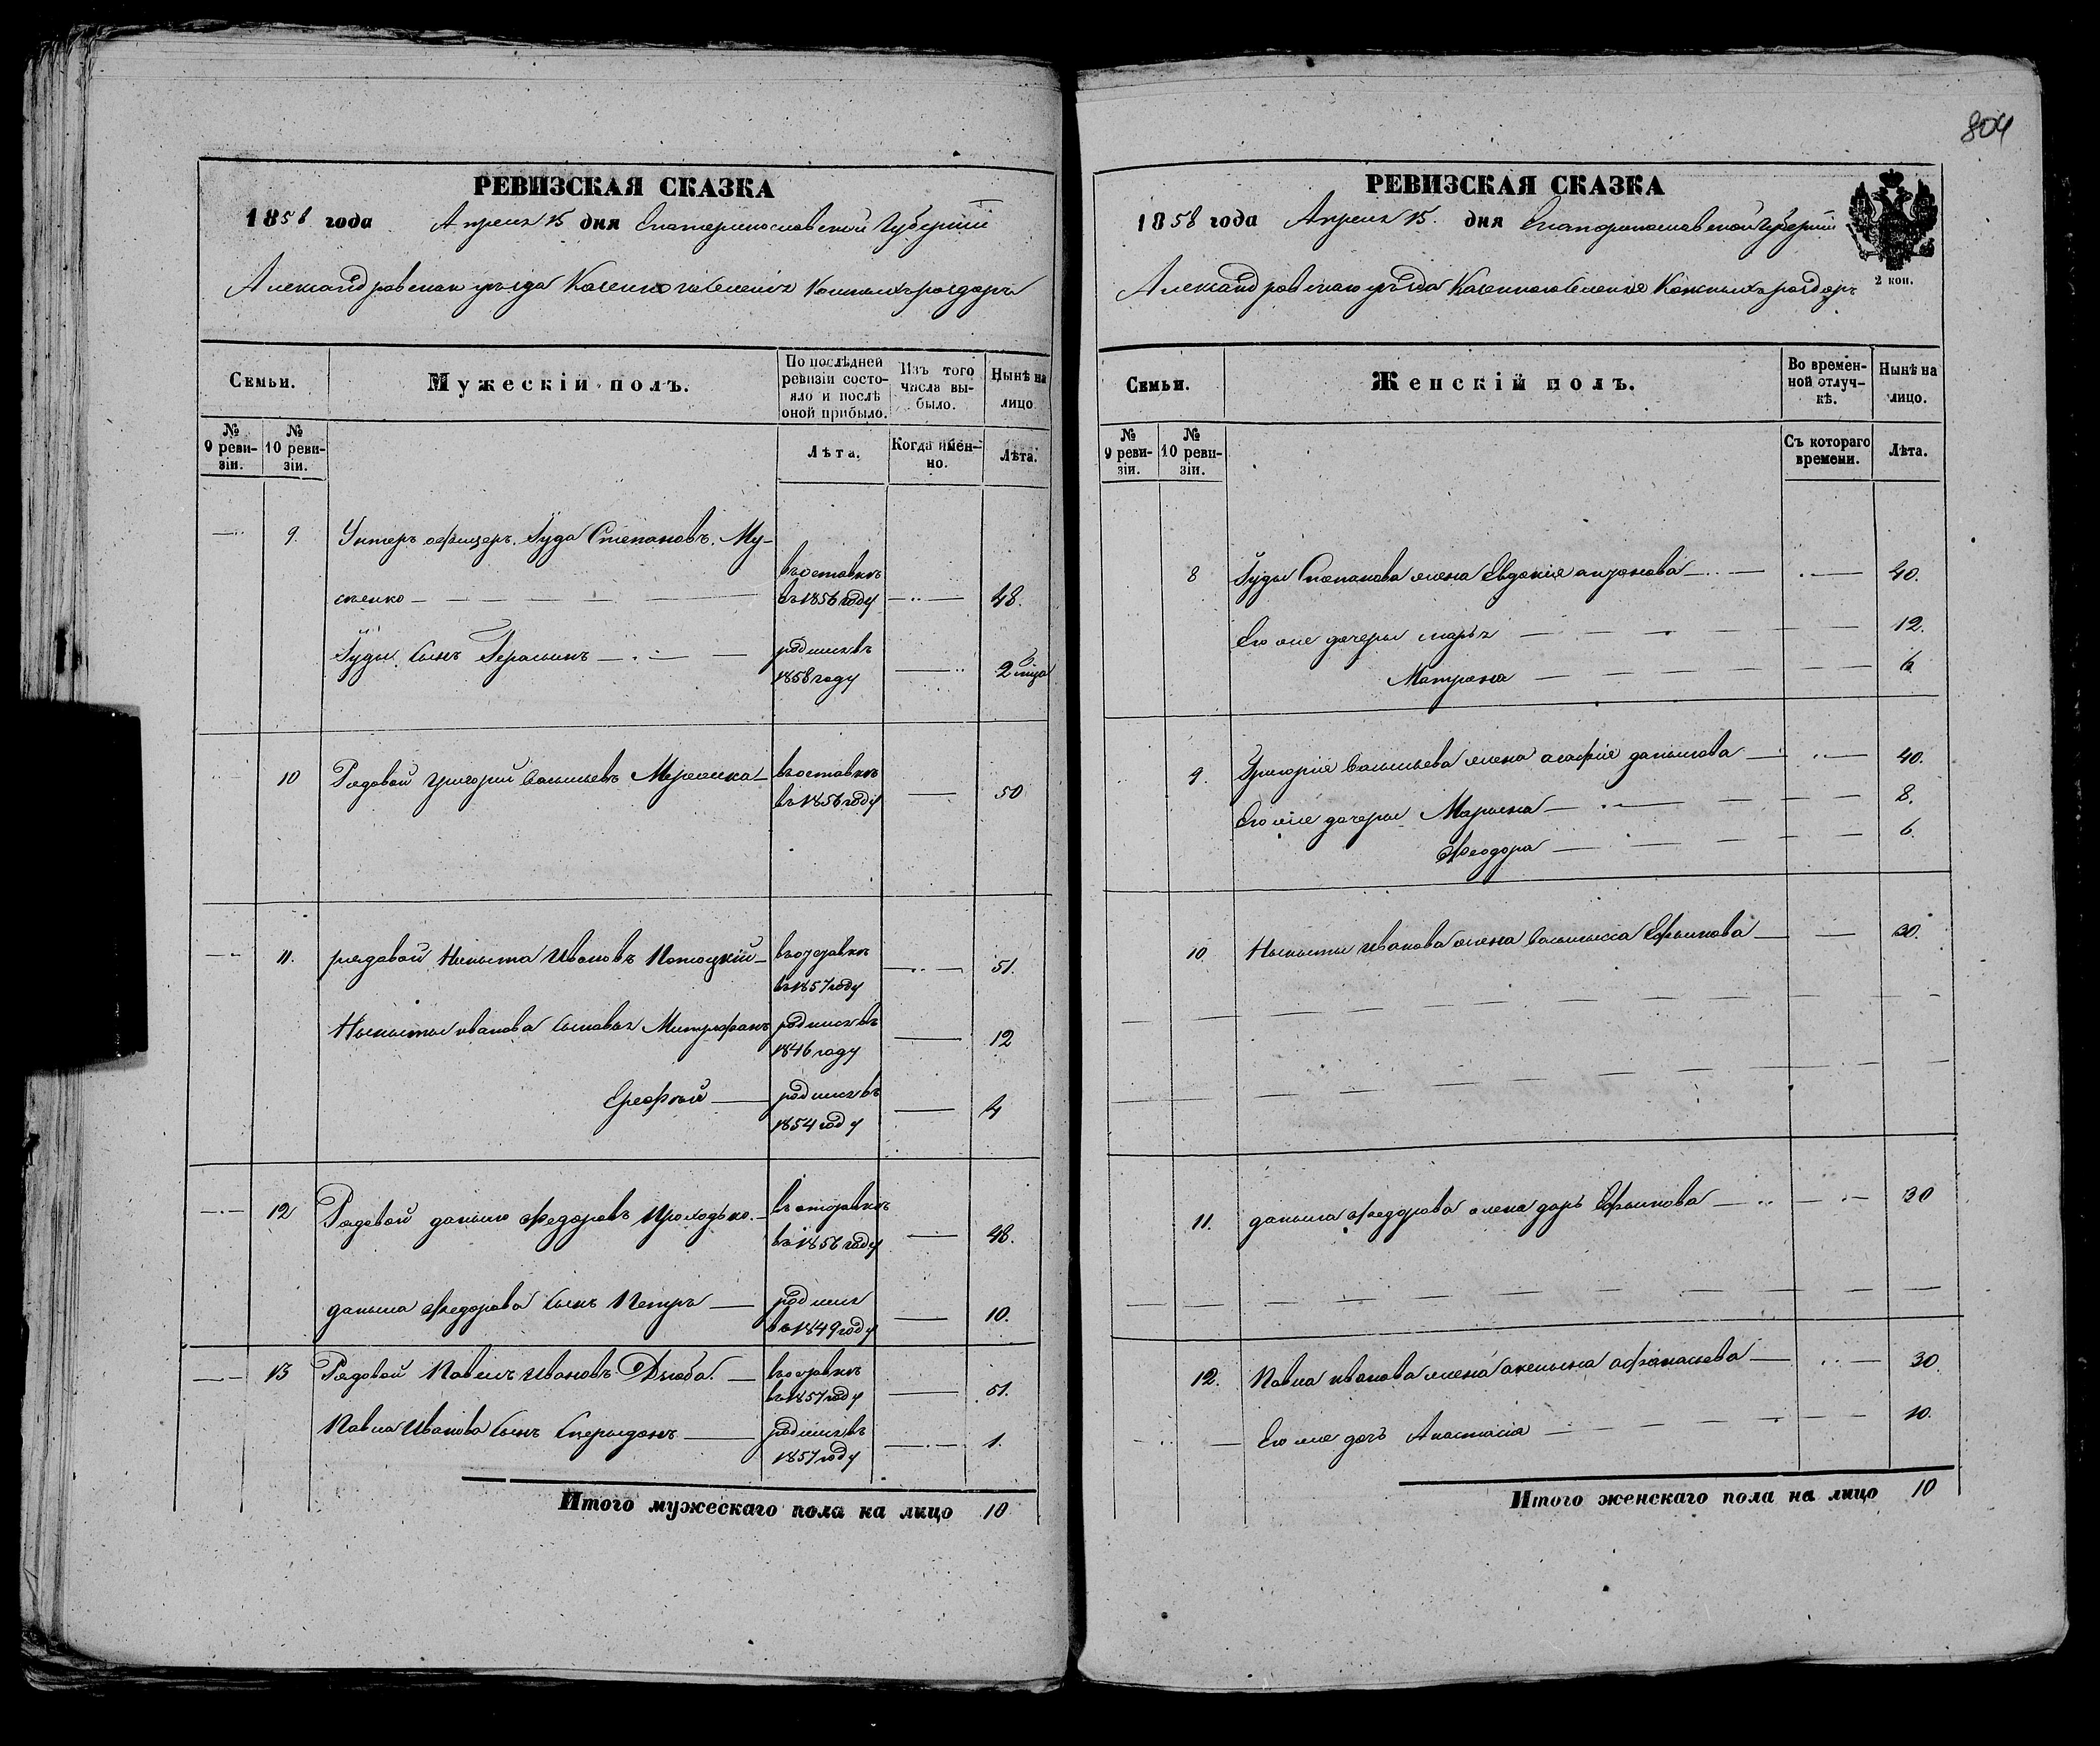 804
РЕВИЗСКАЯ СКАЗКА
1858 года Апреля 15 дня Екатеринославской Губерніи
Александровскаго уѣзда Казеннаго селенія Конскихъ роздоръ
Семьи.
Мужескій полъ.
По послѣдней ревизіи состояло и послѣ оной прибыло.
Изъ того числа выбыло.
Нынѣ на лицо
№ 9 ревизіи.
№ 10 ревизіи.
Лѣта.
Когда именно.
Лѣта.
9. Унтеръ офицеръ Іуда Степановъ Му-
сѣенко въ отставкѣ въ 1856 году 48.
Іуды сынъ Герасимъ родился въ 1858 году 2 мѣца
10 Рядовой Григорій Васильевъ въ отставкѣ въ 1856 году 50
11. рядовой Никита Ивановъ Потоцкій въ отставкѣ въ 1857 году 51.
Никиты иванова сыновья Митрофанъ родился въ 1846 году 12
Ерофѣй родился въ 1854 году 4
12 Рядовой данило федоровъ Проходько въ отставкѣ въ 1856 году 48.
данила федорова сынъ Петръ родился въ 1849 году 10.
13 Рядовой Павелъ Ивановъ Дзюба въ отставкѣ въ 1857 году 51.
Павла Иванова сынъ Спиридонъ родился въ 1857 году 1.
Итого мужескаго пола на лицо 10
РЕВИЗСКАЯ СКАЗКА
1858 года Апреля 15 дня Екатеринославской Губерніи
2 коп.
Александровскаго уѣзда Казеннаго селенія Конскихъ роздоръ
Семьи.
Женскій полъ.
Во временной отлучкѣ.
Нынѣ на лицо.
№ 9 ревизіи.
№ 10 ревизіи.
Съ котораго времени.
Лѣта.
8 Іуды Степанова жена Евдокія антонова 40.
Его же дочери марья 12.
Матрона 6
9. Григорія Васильева жена агафія данилова 40.
Его же дочери Марина 8.
Феодора 6.
10 Никиты иванова жена Василиса Ефимова 30.
11. данила федорова жена дарья Ефимова 30
12. Павла иванова жена акилина афанасьева 30
Его же дочь Анастасія 10.
Итого женскаго пола на лицо 10